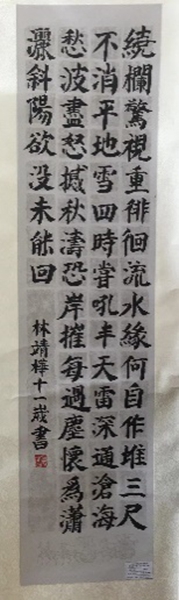 繞欄驚視重徘徊流水緣何自作堆三尺
不消平地雪四時嘗吼半天雷深通滄海
愁波盡怒撼秋濤恐岸摧每遇塵懷為瀟
灑斜陽欲没未能回
林靖樺十一歲書